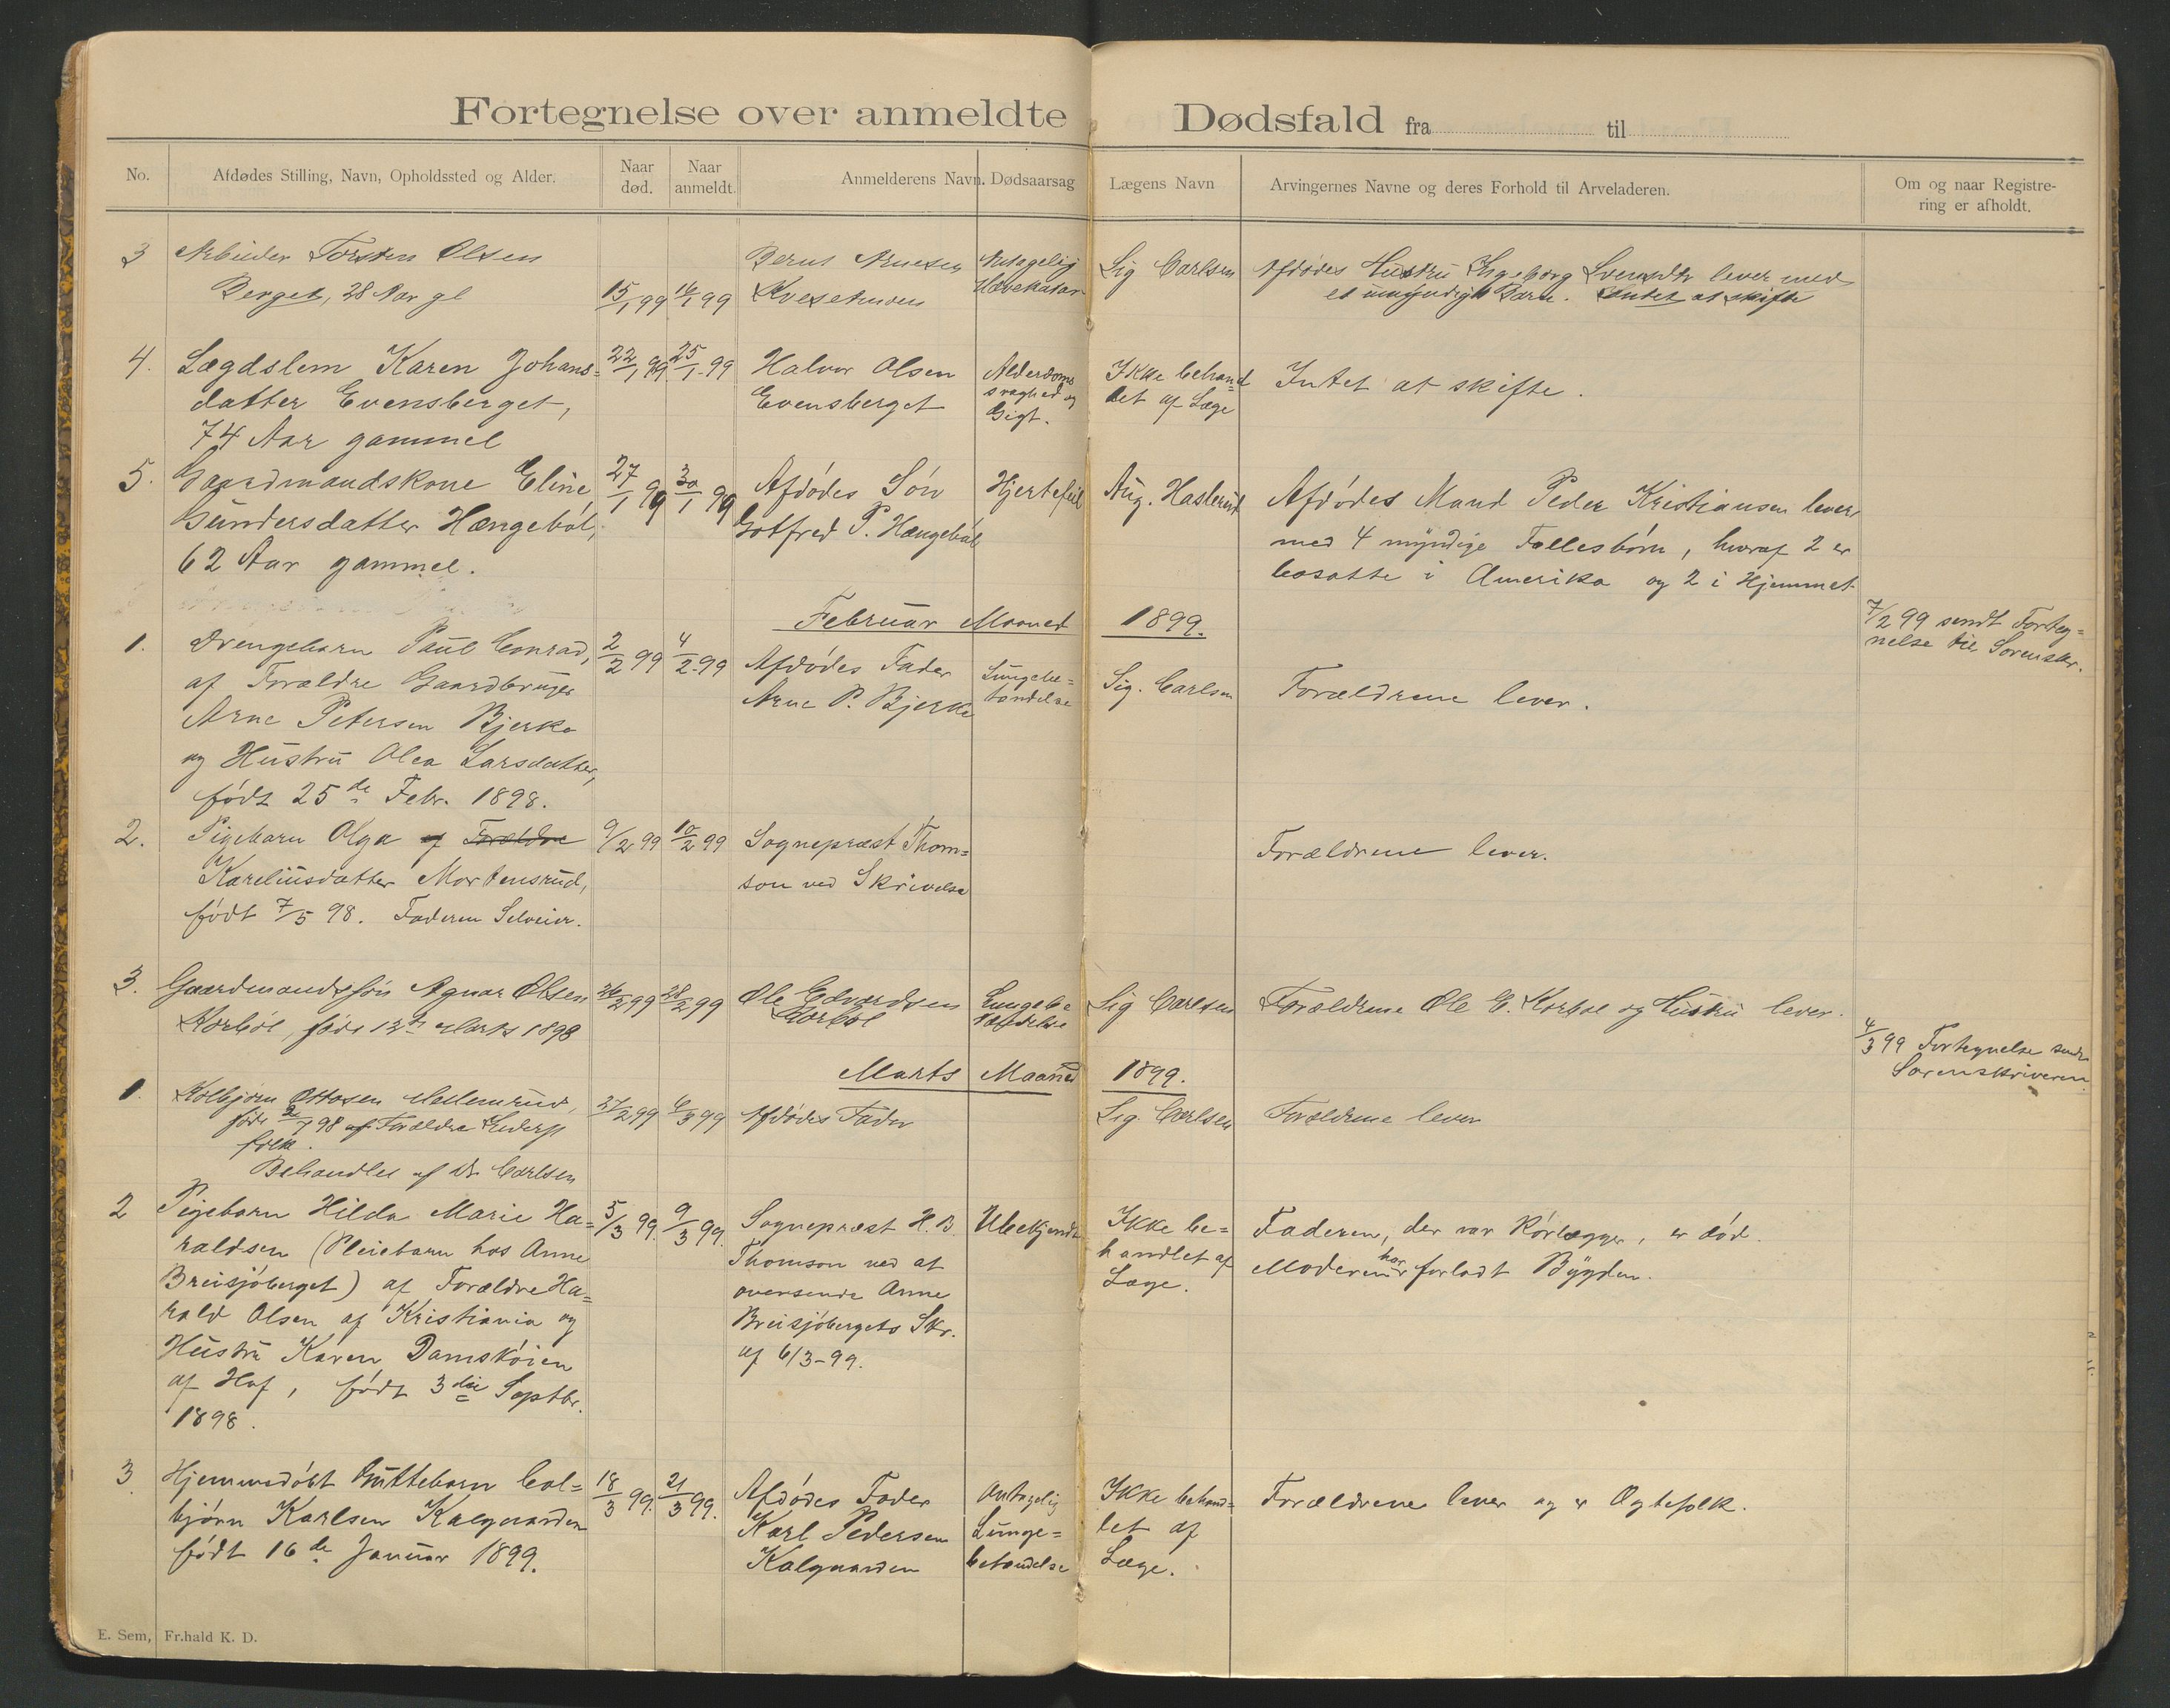 Fortegnelse over anmeldte Dødsfald fra til
No.
Afdødes Stilling, Navn, Opholdssted og Alder.
Naar død.
Naar anmeldt.
Anmelderens Navn.
Dødsaarsag
Lægens Navn
Arvingernes Navne og deres Forhold til Arveladeren.
Om og naar Registre-
ring er afholdt.
3
Arbeider Torsten Olsen
Berget, 28 Aar gl
15/1 99
16/1 99
Bernt Arnesen
Antagelig
Sig Carlsen
Afdødes Hustru Ingeborg Svensdtr lever med
et umyndigt Barn. Intet at skifte
4.
Lægdslem Karen Johans=
datter Evensberget,
74 Aar gammel
22/1 99
25/1-99
Halvor Olsen
Evensberget
Alderdoms
svaghed og
Gigt.
Ikke behand
let af Læge
Intet at skifte.
5.
Gaardmandskone Eline
Gundersdatter Hængebøl,
62 Aar gammel.
27/1 99
30/1 99
Afdødes Søn
Gotfred P. Hængebøl
Hjertefeil
Aug. Haslerud
Afdødes Mand Peder Kristiansen lever
med 4 myndige Fællesbørn, hvoraf 2 er
bosatte i Amerika og 2 i Hjemmet
Februar Maaned 1899.
7/2 99 sendt Forteg=
nelse til Sorenskr.
1.
Drengebarn Paul Conrad,
af Forældre Gaardbruger
Arne Petersen Bjerke
og Hustru Olea Larsdatter,
født 25de Febr. 1898.
2/2 99
4/2-99
Afdødes Fader
Arne P. Bjerke
Lungebe=
tændelse
Sig. Carlsen
Forældrene lever.
2.
Pigebarn Olga af Forældre
Kareliusdatter Mortensrud,
født 7/5 98. Faderen Selveier.
9/2 99
10/2 99
Sognepræst Thom=
son ved Skrivelse
Forældrene lever.
3.
Gaardmandssøn Agnar Olsen
Korbøl, født 12te Marts 1898
26/2 99
28/2 99
Ole Edvardsen
Korbøl
Lungebe
tændelse
Sig Carlsen
Forældrene Ole E. Korbøl og Hustru lever.
4/3 99 Fortegnelse sendt
Sorenskriveren
Marts Maaned 1899.
1.
Kolbjørn Ottosen
født 98 af Forældre
folk.
Behandlet af Dr Carlsen
27/2 99
6/3 99
Afdødes Fader
Sig. Carlsen
Forældrene lever
2
Pigebarn Hilda Marie Ha=
raldsen (Pleiebarn hos Anne
Breisjøberget) af Forældre Ha=
rald Olsen af Kristiania og
Hustru Karen Damskøien
af Hof, født 3die Septbr.
1898.
5/3 99.
9/3 99.
Sognepræst H. B.
Thomson ved at
oversende Anne
Breisjøbergets Skr.
af 6/3-99.
Ubekjendt
Ikke be=
handlet af
Læge.
Faderen, der var Rørlægger, er død.
Moderen har forladt Bygden.
3
Hjemmedøbt Guttebarn Col=
bjørn Karlsen Kalgaarden
født 16de Januar 1899.
18/3 99.
21/3 99.
Afdødes Fader
Karl Pedersen
Kalgaarden
Antagelig
Lunge=
betændelse
Ikke behand=
let af
Læge.
Forældrene lever og er Ægtefolk.
E. Sem, Fr.hald K. D.